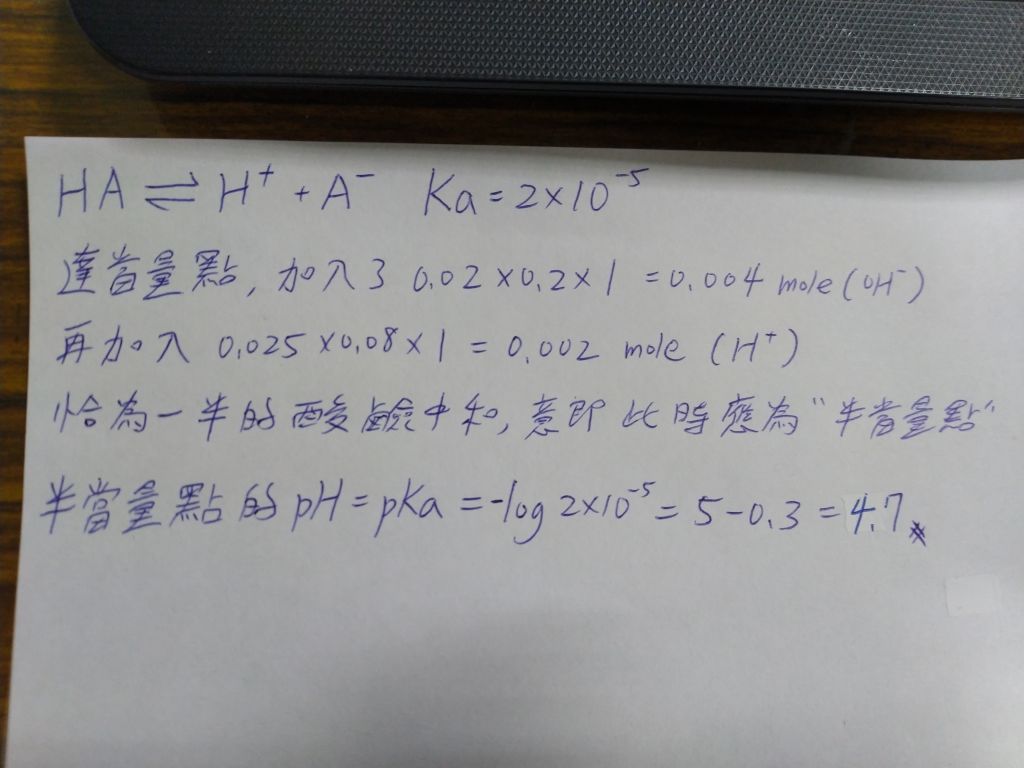 HA ⇌ H⁺ + A⁻ Ka = 2×10⁻⁵
達當量點, 加入了 0.02 × 0.2 × 1 = 0.004 mole (OH⁻)
再加入 0.025 × 0.08 × 1 = 0.002 mole (H⁺)
恰為一半的酸鹼中和, 意即此時應為 "半當量點"
半當量點的 pH = pKa = -log 2×10⁻⁵ = 5 - 0.3 = 4.7